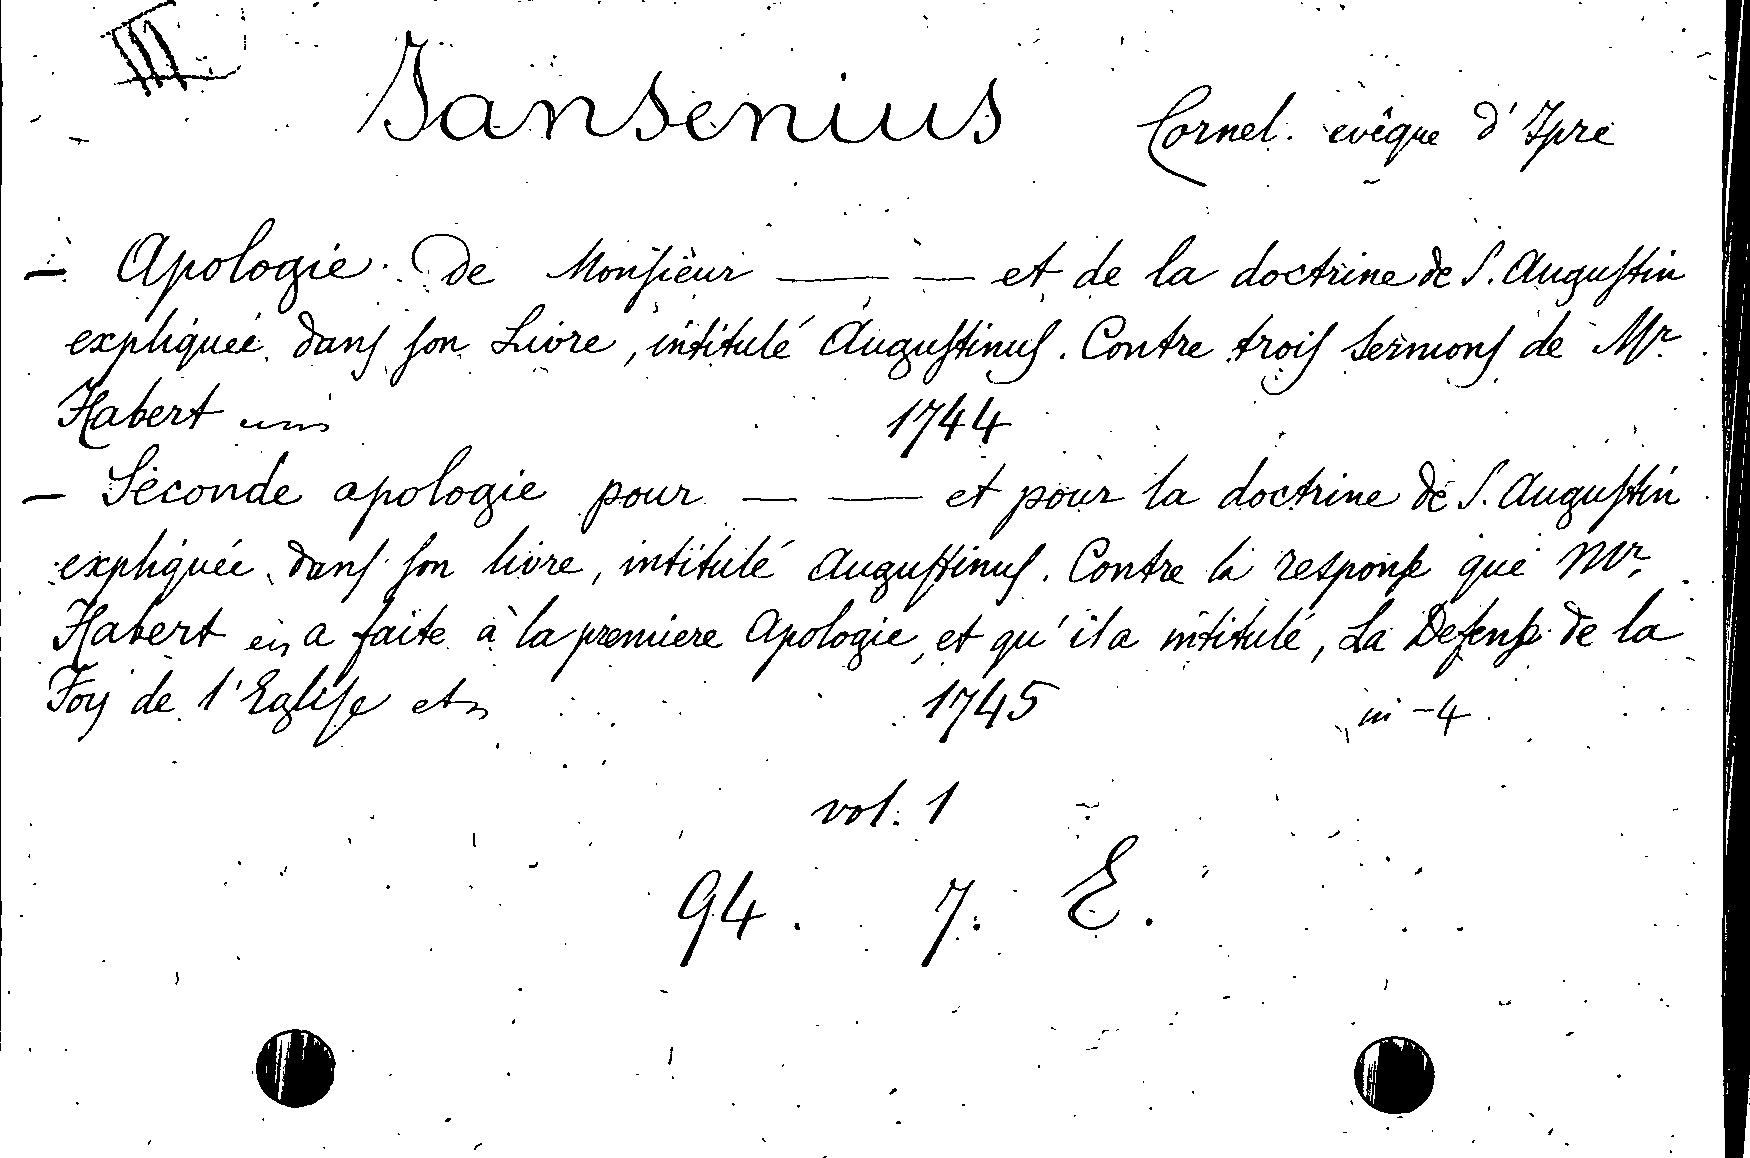 III
Jansenius Cornel. evêque d'Ipre
— Apologie de Monsieur — — et de la doctrine de S. Augustin
expliquée dans son Livre, intitulé Augustinus. Contre trois sermons de Mr.
Habert 1744
— Seconde apologie pour — — et pour la doctrine de S. Augustin
expliquée dans son livre, intitulé Augustinus. Contre la response que Mr.
Habert en a faite à la premiere Apologie, et qu'il a intitulé, La Defense de la
Foy de l'Eglise etc 1745 in-4
vol. 1
94. 7. E.